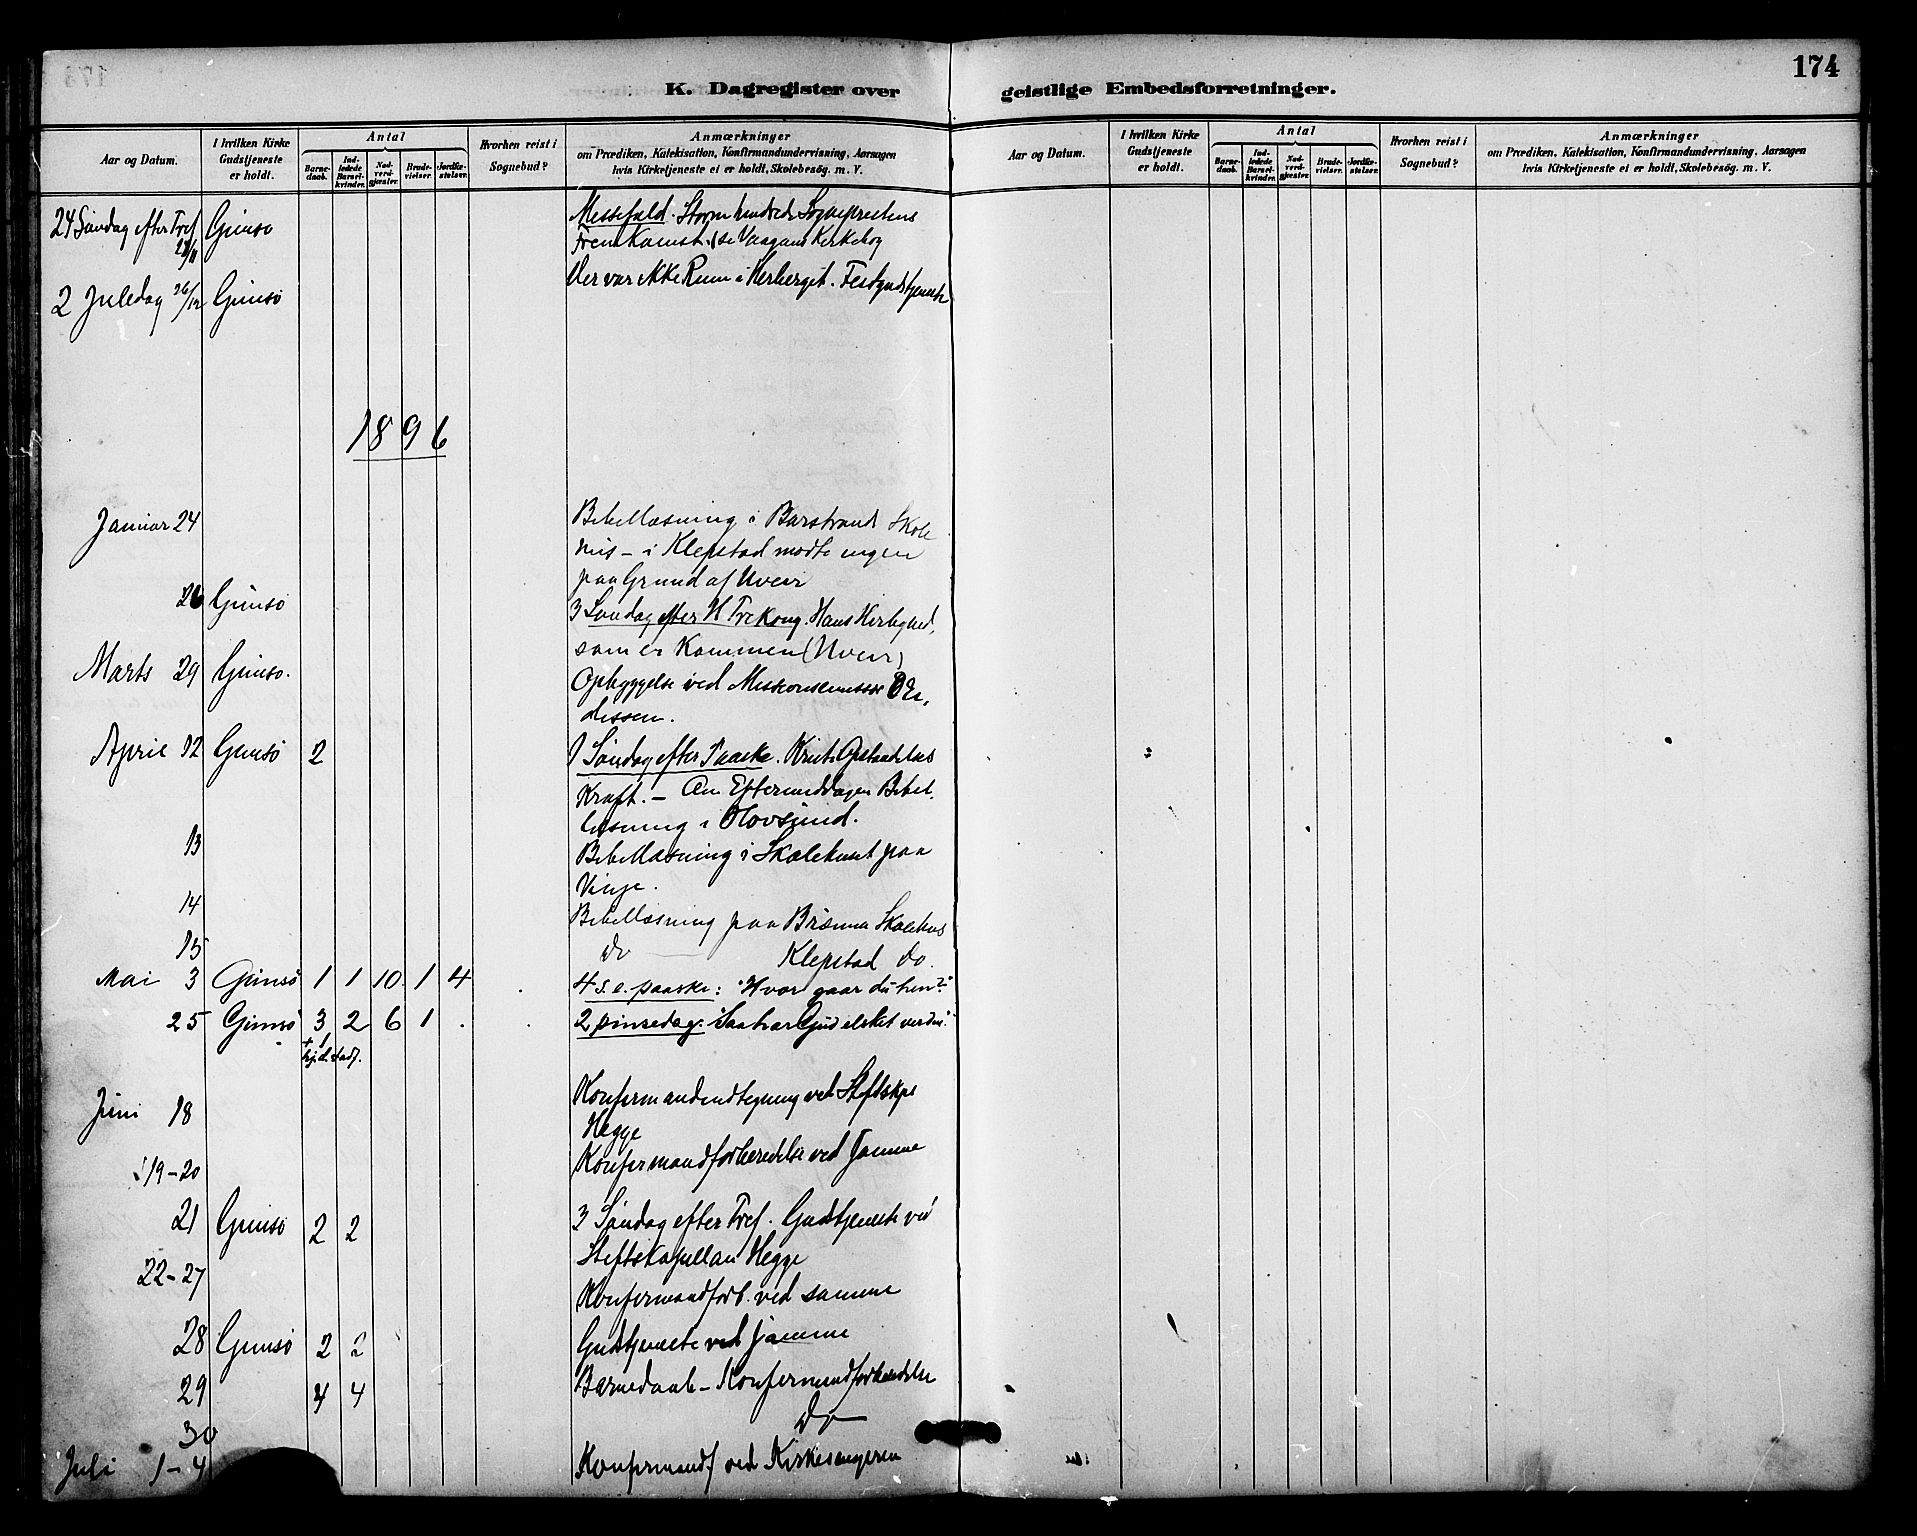 174
K. Dagregister over geistlige Embedsforretninger.
Aar og Datum.
I hvilken Kirke Gudstjeneste er holdt.
Antal
Barnedaab.
Indledede Barselkvinder.
Nadverdgjæster.
Brudevielser.
Jordfæstelser.
Hvorhen reist i Sognebud?
Anmærkninger
om Prædiken, Katekisation, Konfirmandundervisning, Aarsagen
hvis Kirketjeneste ei er holdt, Skolebesøg. m. V.
Aar og Datum.
I hvilken Kirke Gudstjeneste er holdt.
Antal
Barnedaab.
Indledede Barselkvinder.
Nadverdgjæster.
Brudevielser.
Jordfæstelser.
Hvorhen reist i Sognebud?
Anmærkninger
om Prædiken, Katekisation, Konfirmandundervisning, Aarsagen
hvis Kirketjeneste ei er holdt, Skolebesøg. m. V.
24 Søndag efter Tref Gimsø Messefald. Storm hindrede Sognepræstens
Fremkomst. (se Vaagans Kirkebog
2 Juledag 26/12 Gimsø Der var ikke Rum i Herberget. Festgudstjeneste
1896
Januar 24 Bibellæsning i Barstrand Skole
hus - i Klepstad mødte ingen
paa Grund af Uveir
26 Gimsø 3 Søndag efter H Trekong. Hans Herlighed,
som er Kommen (Uveir)
Marts 29 Gimsø. Opbyggelse ved
April 12 Gimsø 2 1 Søndag efter Paaske. Kristi Opstandelses
Kraft. - Om Eftermiddagen Bibel.
læsning i Olovsund.
13 Bibellæsning i Skolehuset paa
Vinje.
14 Bibellæsning paa Brenna Skolehus
15 Do Klepstad do.
Mai 3 Gimsø 1 1 10 1 4 4 s. e. paaske: "Hvor gaar du hen?"
25 Gimsø 3 2 6 1 . 2 pinsedag. "Saa har Gud elsket verden."
+ 1
hj.d. stadf.
Juni 18 Konfirmandindtegning ved Stiftskps
Hegge
19-20 Konfirmandforberedelse ved samme
21 Gimsø 2 2 3 Søndag efter Tref. Gudstjeneste ved
Stiftskapellan Hegge
22-27 Konfirmandforb. ved samme
28 Gimsø 2 2 Gudstjeneste ved samme
29 4 4 Barnedaab - Konfirmandforberedelse
30 Do
Juli 1-4 Konfirmandf ved Kirkesangeren